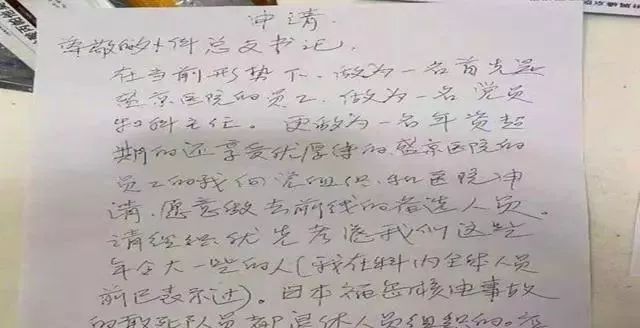 申请
尊敬的外科总支书记,
在当前形势下、做为一名首先是
盛京医院的员工、做为一名党员
和科主任。更做为一名年资超
期的还享受优厚待的盛京医院的
员工的我向党组织和医院申
请、愿意做去前线的备选人员。
请组织优先考虑我们这些
年令大一些的人(我在科内全体人员
前已表示过)。日本福岛核电事故
的敢死队人员都是退休人员组织的,